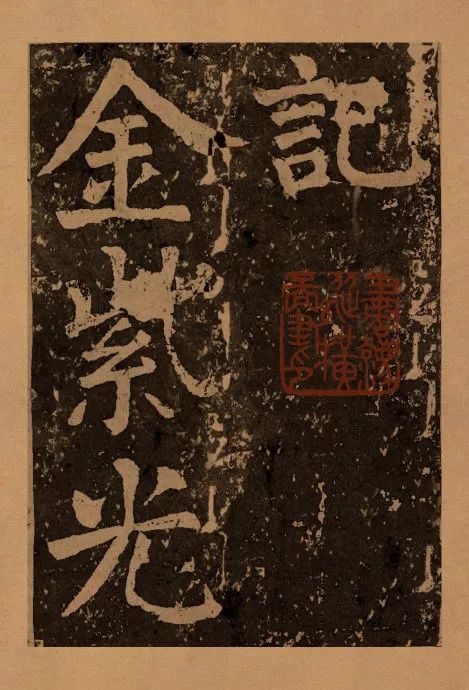 記
金紫光